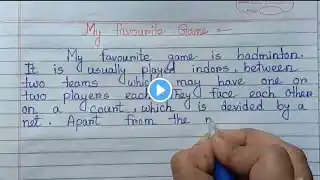 My favourite Game :-
My favourite game is badminton.
It is usually played indors between
two teams which may have one or
two players each. They face each other
on a court, which is devided by a
net. Apart from the